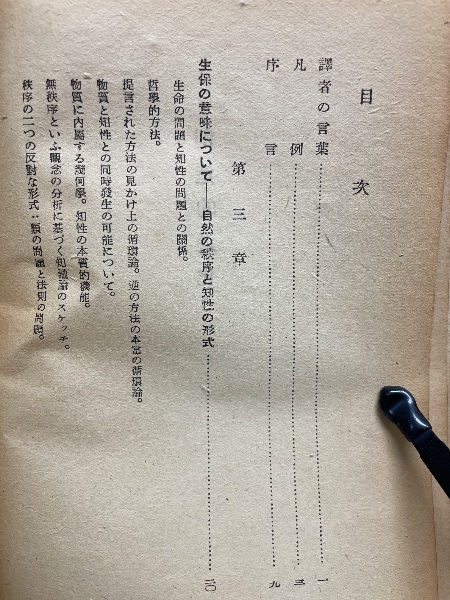 目次
譯者の言葉……………………一
凡例……………………三
序言……………………九
第三章
生保の意味について――自然の秩序と知性の形式……………………二〇
生命の問題と知性の問題との關係。
哲學的方法。
提言された方法の見かけ上の循環論。逆の方法の本當の循環論。
物質と知性との同時發生の可能について。
物質に内屬する幾何學。知性の本質的機能。
無秩序といふ觀念の分析に基づく知識論のスケッチ。
秩序の二つの反對な形式：類の問題と法則の問題。